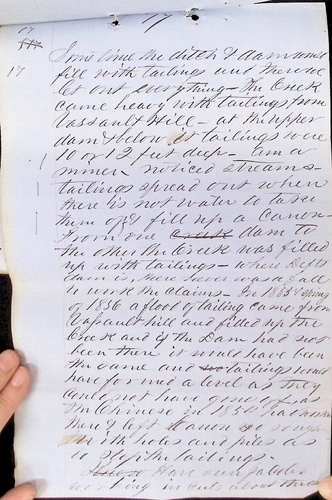 17
17
Some time the ditch & dam would
fill with tailings and then we
let out everything - The Creek
came heavy with tailings from
Vassault Hill - at the upper
dam & below it tailings were
10 or 12 feet deep - am a
miner - noticed streams -
tailings spread out when
there is not water to take
them off & fill up a Canon
From one Creek dam to
the other the Creek was filled
up with tailings - where
claims, there
to work the claims - In 1855 & Spring
of 1856 a flood of tailing came from
Vassault hill and filled up the
Creek and if the Dam had not
been there it would have been
the same and tailings would
have formed a level as they
could not have gone off as
the Chinese in 1854 had
there & left Canon so
with holes and piles as
to stop the tailings -
Have seen
working in about